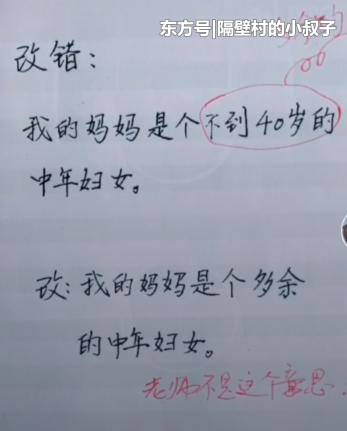 东方号|隔壁村的小叔子
改错：
我的妈妈是个不到40岁的
中年妇女。
改：我的妈妈是个多余
的中年妇女。
老师不是这个意思.